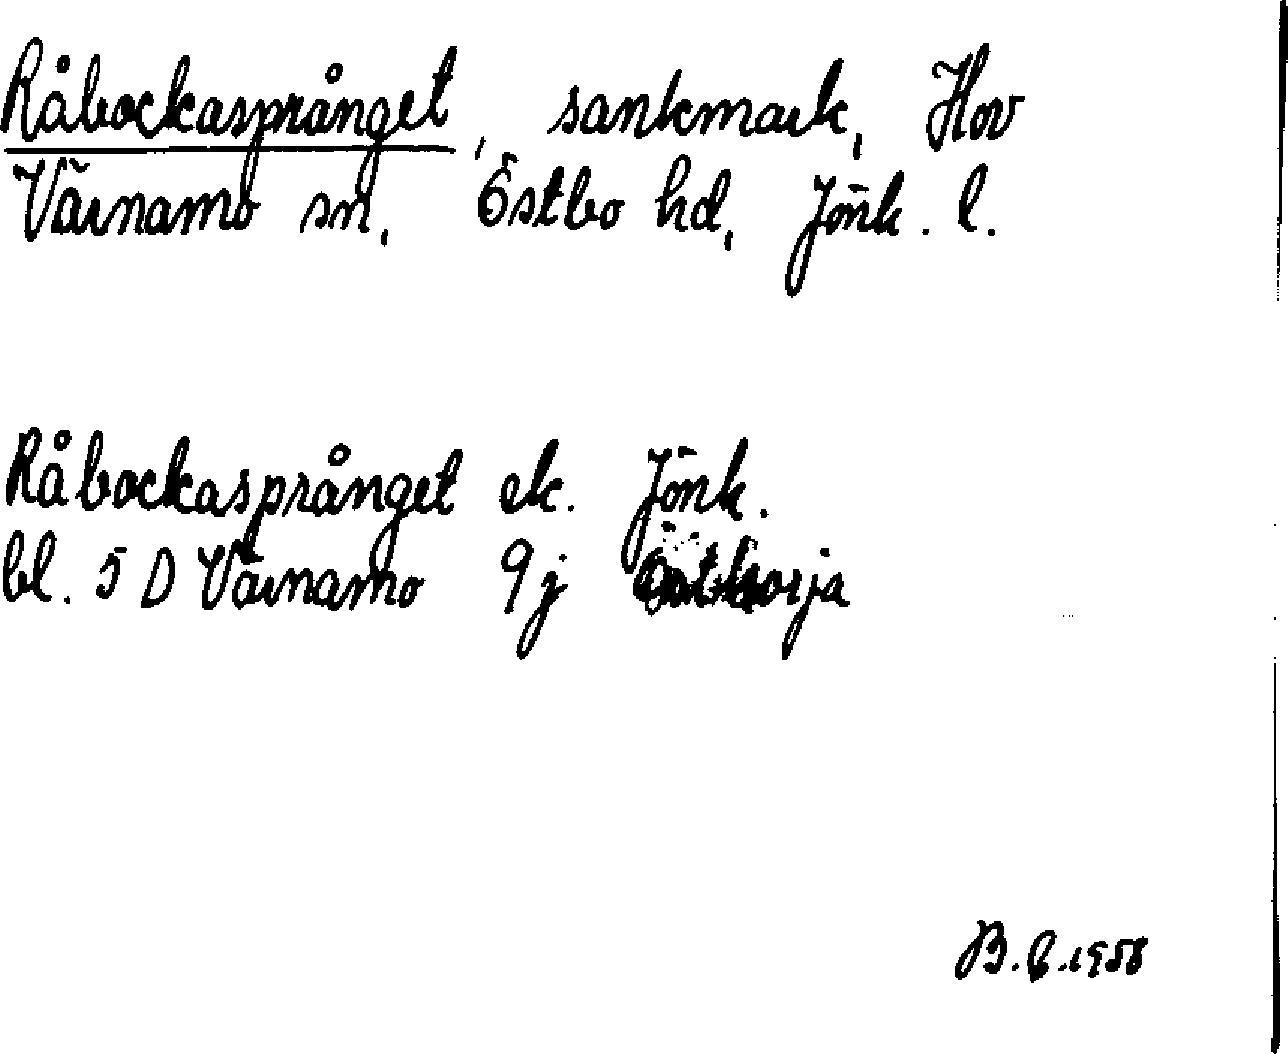 Råbockasprånget, sankmark, Hov
Värnamo sn, Östbo hd, Jönk. l.
Råbockasprånget ek. Jönk.
bl. 5 D Värnamo 9j
B.G.1958